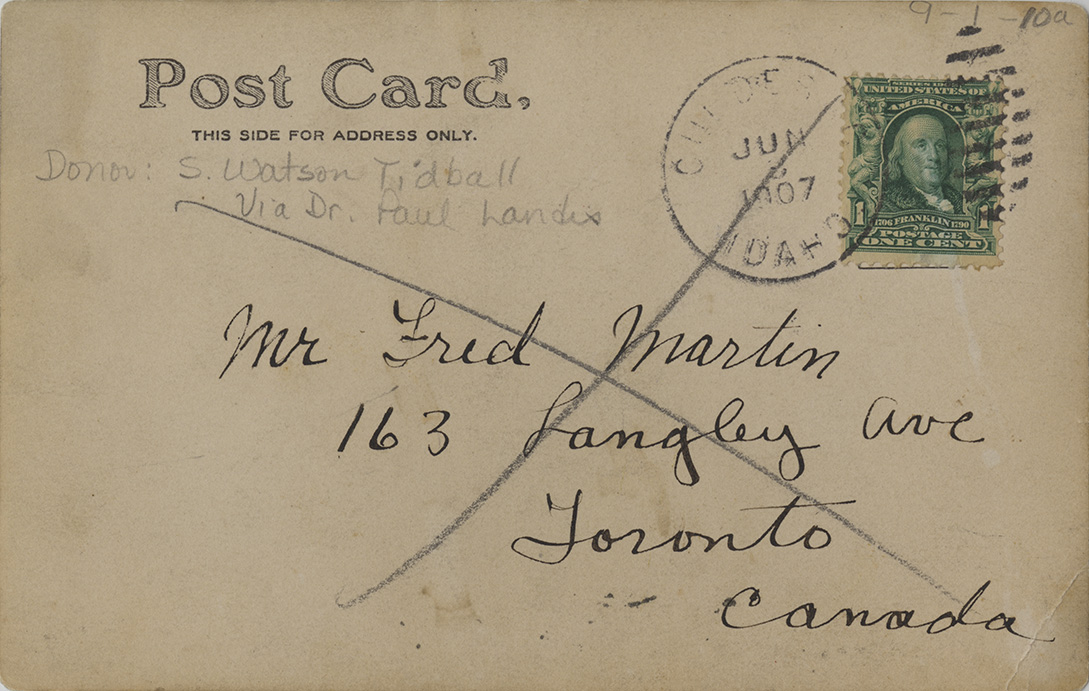 9-1-10a
Post Card.
THIS SIDE FOR ADDRESS ONLY.
Donor: S. Watson Tidball
Via Dr. Paul Landis
JUN
1907
IDAHO
UNITED STATES OF
AMERICA
1 1
1706 FRANKLIN 1790
POSTAGE
ONE CENT
Mr Fred Martin
163 Langley Ave
Toronto
Canada